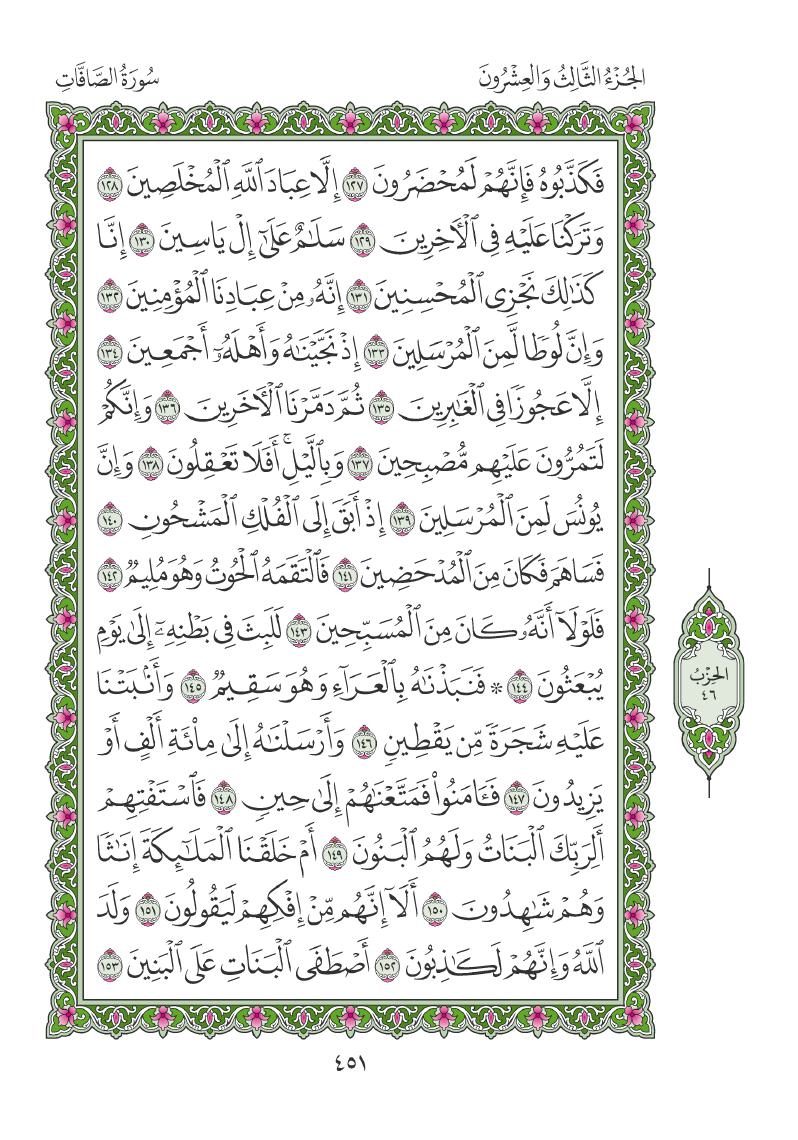 الجُزْءُ الثَّالِثُ وَالعِشْرُونَ
سُورَةُ الصَّافَّاتِ
فَكَذَّبُوهُ فَإِنَّهُمْ لَمُحْضَرُونَ ١٢٧ إِلَّا عِبَادَ ٱللَّهِ ٱلْمُخْلَصِينَ ١٢٨
وَتَرَكْنَا عَلَيْهِ فِى ٱلْأَخِرِينَ ١٢٩ سَلَٰمٌ عَلَىٰٓ إِلْ يَاسِينَ ١٣٠ إِنَّا
كَذَٰلِكَ نَجْزِى ٱلْمُحْسِنِينَ ١٣١ إِنَّهُۥ مِنْ عِبَادِنَا ٱلْمُؤْمِنِينَ ١٣٢
وَإِنَّ لُوطًا لَّمِنَ ٱلْمُرْسَلِينَ ١٣٣ إِذْ نَجَّيْنَٰهُ وَأَهْلَهُۥٓ أَجْمَعِينَ ١٣٤
إِلَّا عَجُوزًا فِى ٱلْغَٰبِرِينَ ١٣٥ ثُمَّ دَمَّرْنَا ٱلْأَخَرِينَ ١٣٦ وَإِنَّكُمْ
لَتَمُرُّونَ عَلَيْهِم مُّصْبِحِينَ ١٣٧ وَبِٱلَّيْلِ ۗ أَفَلَا تَعْقِلُونَ ١٣٨ وَإِنَّ
يُونُسَ لَمِنَ ٱلْمُرْسَلِينَ ١٣٩ إِذْ أَبَقَ إِلَى ٱلْفُلْكِ ٱلْمَشْحُونِ ١٤٠
فَسَاهَمَ فَكَانَ مِنَ ٱلْمُدْحَضِينَ ١٤١ فَٱلْتَقَمَهُ ٱلْحُوتُ وَهُوَ مُلِيمٌ ١٤٢
فَلَوْلَآ أَنَّهُۥ كَانَ مِنَ ٱلْمُسَبِّحِينَ ١٤٣ لَلَبِثَ فِى بَطْنِهِۦٓ إِلَىٰ يَوْمِ
يُبْعَثُونَ ١٤٤ * فَنَبَذْنَٰهُ بِٱلْعَرَآءِ وَهُوَ سَقِيمٌ ١٤٥ وَأَنۢبَتْنَا
عَلَيْهِ شَجَرَةً مِّن يَقْطِينٍ ١٤٦ وَأَرْسَلْنَٰهُ إِلَىٰ مِا۟ئَةِ أَلْفٍ أَوْ
يَزِيدُونَ ١٤٧ فَـَٔامَنُوا۟ فَمَتَّعْنَٰهُمْ إِلَىٰ حِينٍ ١٤٨ فَٱسْتَفْتِهِمْ
أَلِرَبِّكَ ٱلْبَنَاتُ وَلَهُمُ ٱلْبَنُونَ ١٤٩ أَمْ خَلَقْنَا ٱلْمَلَٰٓئِكَةَ إِنَٰثًا
وَهُمْ شَٰهِدُونَ ١٥٠ أَلَآ إِنَّهُم مِّنْ إِفْكِهِمْ لَيَقُولُونَ ١٥١ وَلَدَ
ٱللَّهُ وَإِنَّهُمْ لَكَٰذِبُونَ ١٥٢ أَصْطَفَى ٱلْبَنَاتِ عَلَى ٱلْبَنِينَ ١٥٣
الحِزْبُ
٤٦
٤٥١